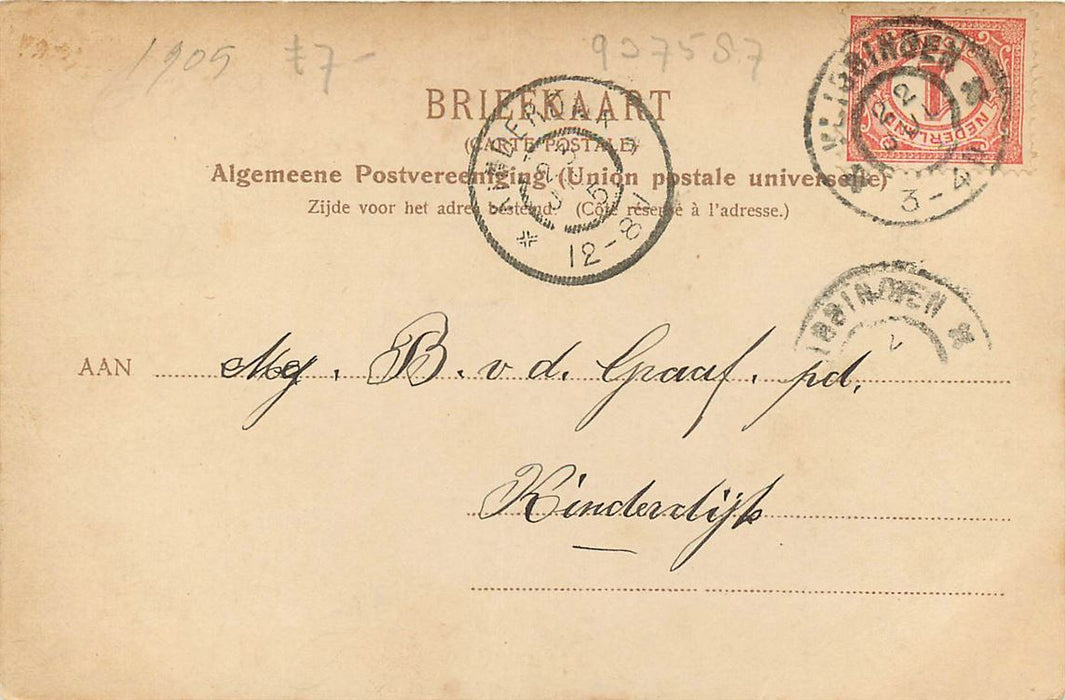 1905 £7- 907587
BRIEFKAART
(CARTE POSTALE)
Algemeene Postvereeniging (Union postale universelle)
Zijde voor het adres bestemd. (Côté réservé à l'adresse.)
VLISSINGEN
3-4
1
NEDERLAND
KINDERDIJK
12-8
VLISSINGEN
AAN
Mej. B. v. d. Graaf. pd.
Kinderdijk